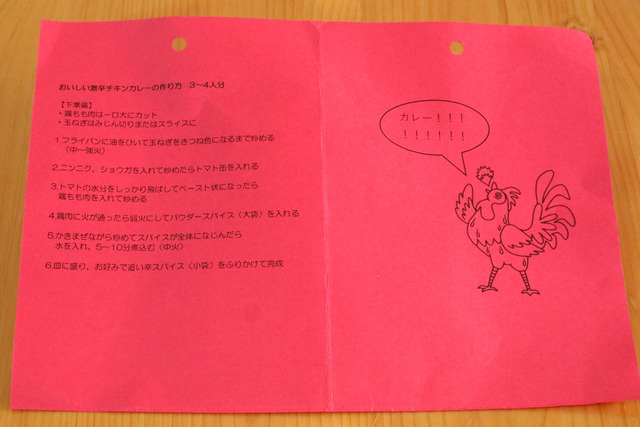 おいしい激辛チキンカレーの作り方　3～4人分
【下準備】
・鶏もも肉は一口大にカット
・玉ねぎはみじん切りまたはスライスに
1.フライパンに油をひいて玉ねぎをきつね色になるまで炒める
（中～強火）
2.ニンニク、ショウガを入れて炒めたらトマト缶を入れる
3.トマトの水分をしっかり飛ばしてペースト状になったら
鶏もも肉を入れて炒める
4.鶏肉に火が通ったら弱火にしてパウダースパイス（大袋）を入れる
5.かきまぜながら炒めてスパイスが全体になじんだら
水を入れ、5～10分煮込む（中火）
6.皿に盛り、お好みで追い辛スパイス（小袋）をふりかけて完成
カレー！！！
！！！！！！